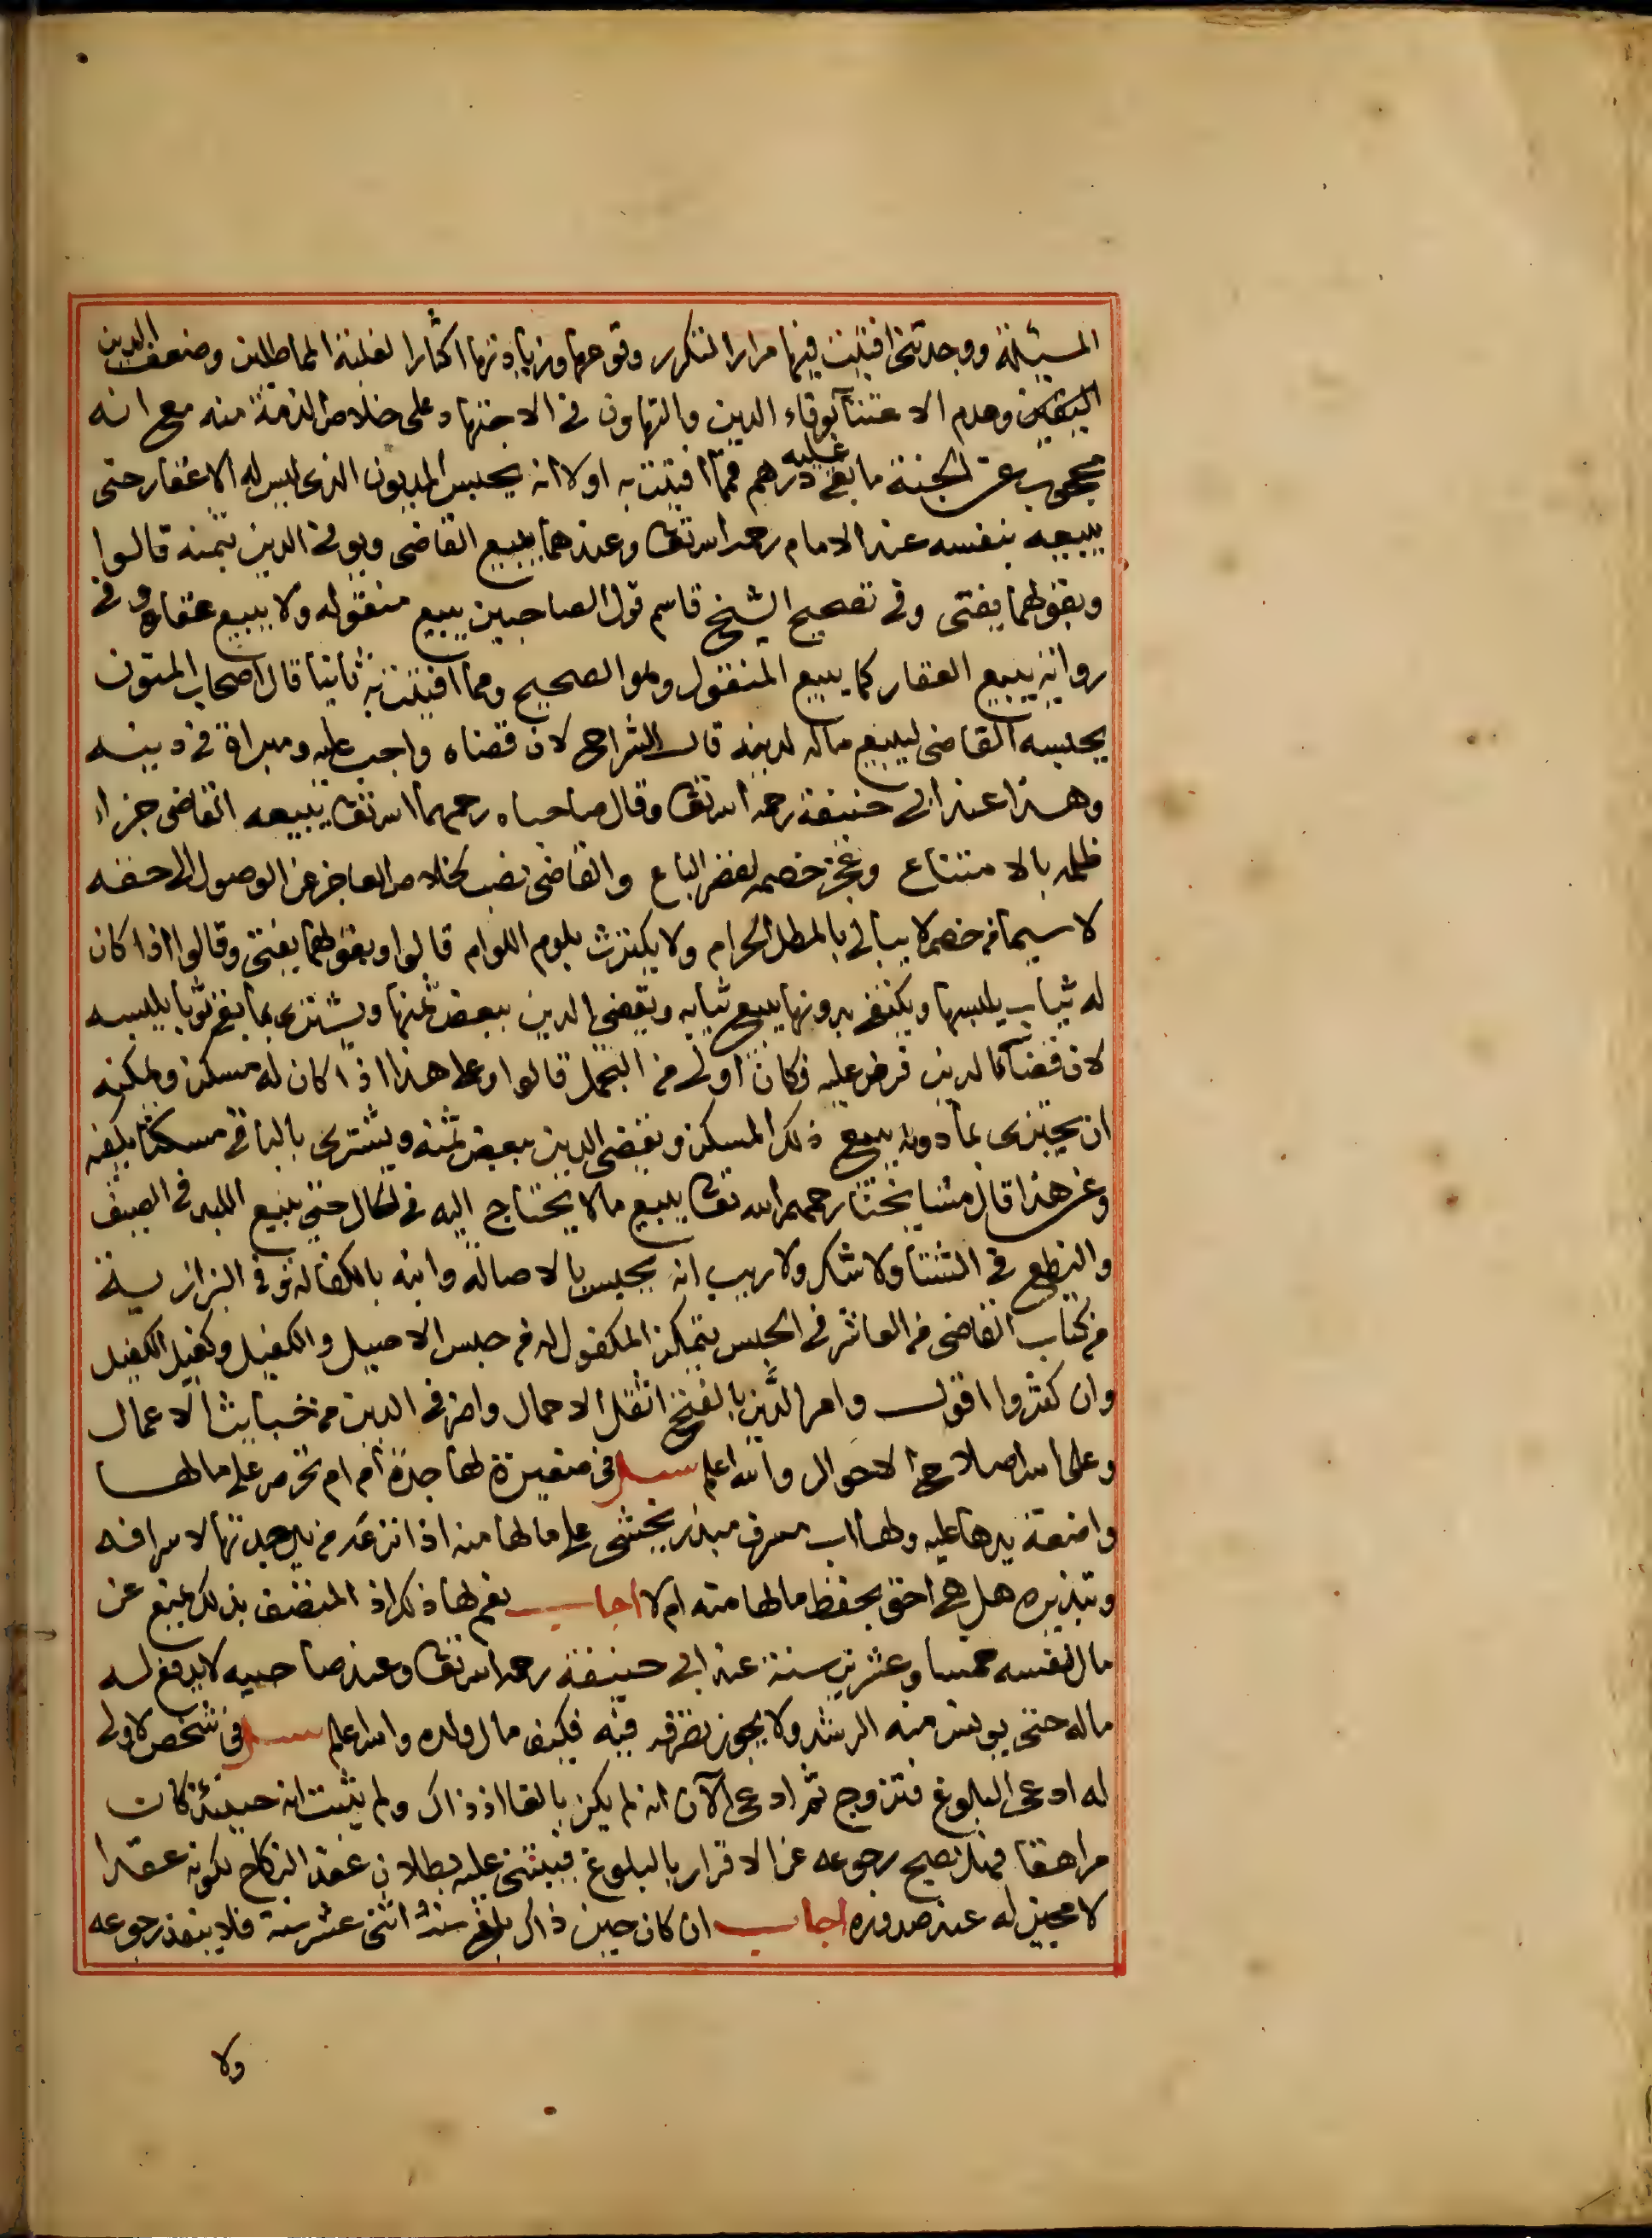 المسئلة ووجدتنى افتيت فيها مرارا لتكرر وقوعها وزيادتها اكثارا لغلبة المماطلين وضعف الدين
اليقين وعدم الاعتنآ بوفاء الدين والتهاون فى الاجتهاد على خلاص الذمة منه مع انه
محجوب عن الجنة ما بقى عليه درهم فمما افتيت به اولا انه يحبس المديون الذى ليس له الا عقار حتى
يبيعه بنفسه عند الامام رحمه الله تعا وعندهما يبيع القاضى ويوفى الدين بثمنه قالوا
وبقولهما يفتى وفى تصحيح الشيخ قاسم قول الصاحبين يبيع منقوله ولا يبيع عقاره وفى
رواية يبيع العقار كما يبيع المنقول وهو الصحيح ومما افتيت به ثانيا قال اصحاب المتون
يحبسه القاضى ليبيع ماله لدينه قال الشراح لان قضاه واجب عليه و فى دينه
وهذا عند ابى حنيفة رحمه الله تعا وقال صاحباه رحمهما الله تعا يبيعه القاضى جزاء
ظلمه بالامتناع وعجز خصمه لقصر الباع والقاضى نصب لخلاص العاجز عن الوصول الى حقه
لا سيما من خصم لا يبالى بالمطل الحرام ولا يكترث بلوم اللوام قالوا وبقولهما يفتى وقالوا اذا كان
له ثياب يلبسها ويكتفى بدونها يبيع ثيابه ويقضى الدين ببعض ثمنها ويشترى بما بقى ثوبا يلبسه
لان قضآء الدين فرض عليه فكان اولى من التجمل قالوا وعلى هذا اذا كان له مسكن ويمكنه
ان يجتزى بما دونه يبيع ذلك المسكن ويقضى الدين ببعض ثمنه ويشترى بالباقى مسكنا يكفيه
وعن هذا قال مشايخنا رحمهم الله تعا يبيع مالا يحتاج اليه فى الحال حتى يبيع اللبد فى الصيف
والنطع فى الشتآ ولا شك ولا ريب انه يحبس بالاصالة وابنه بالكفالة وفى البزازية
من كتاب القاضى من العاشر فى الحبس يتمكن المكفول له من حبس الاصيل والكفيل وكفيل الكفيل
وان كثروا اقول وامر الدَّين بالفتح اثقل الاحمال واضر فى الدين من خبايث الاعمال
وعلى الله اصلاح الاحوال والله اعلم سئل فى صغيرة لها جدة ام ام تحرص على مالها
واضعة يدها عليه ولها اب مسرف مبذر يخشى على مالها منه اذا انتزعه من يد جدتها لاسرافه
وتبذيره هل هى احق بحفظ مالها منه ام لا اجاب نعم لها ذلك اذ المتصف بذلك يمنع عن
مال نفسه خمسا وعشرين سنة عند ابى حنيفة رحمه الله تعا وعند صاحبيه لا يدفع له
ماله حتى يونس منه الرشد ولا يجوز تصرفه فيه فكيف مال ولده والله اعلم سئل فى شخص لا ولى
له ادعى البلوغ فتزوج ثم ادعى الآن انه لم يكن بالغا اذ ذاك ولم يثبت انه حينئذ كان
مراهقا فهل يصح رجوعه عن الاقرار بالبلوغ فيبتنى عليه بطلان عقد النكاح لكونه عقدا
لا مجيز له عند صدوره اجاب ان كان حين ذاك بلغ سنه اثنى عشر سنة فلا ينفذ رجوعه
ولا